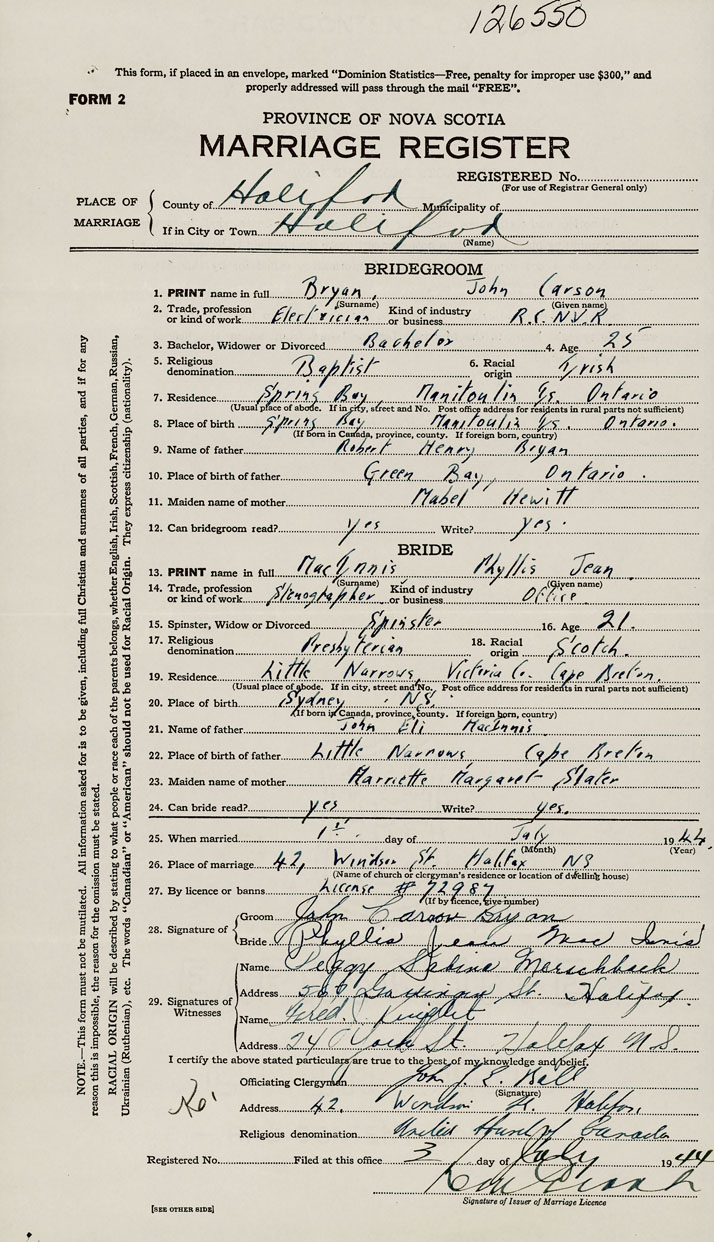 126550
This form, if placed in an envelope, marked "Dominion Statistics—Free, penalty for improper use $300," and
properly addressed will pass through the mail "FREE".
FORM 2
PROVINCE OF NOVA SCOTIA
MARRIAGE REGISTER
REGISTERED No.
(For use of Registrar General only)
PLACE OF MARRIAGE
County of Halifax Municipality of
If in City or Town Halifax
(Name)
BRIDEGROOM
1. PRINT name in full Bryan, John Carson
(Surname) (Given name)
2. Trade, profession or kind of work Electrician Kind of industry or business R.C.N.V.R
3. Bachelor, Widower or Divorced Bachelor 4. Age 25
5. Religious denomination Baptist 6. Racial origin Irish
7. Residence Spring Bay, Manitoulin Is. Ontario
(Usual place of abode. If in city, street and No. Post office address for residents in rural parts not sufficient)
8. Place of birth Spring Bay Manitoulin Is. Ontario.
(If born in Canada, province, county. If foreign born, country)
9. Name of father Robert Henry Bryan
10. Place of birth of father Green Bay, Ontario.
11. Maiden name of mother Mabel Hewitt
12. Can bridegroom read? yes Write? yes.
BRIDE
13. PRINT name in full MacInnis Phyllis Jean
(Surname) (Given name)
14. Trade, profession or kind of work Stenographer Kind of industry or business Office
15. Spinster, Widow or Divorced Spinster 16. Age 21.
17. Religious denomination Presbyterian 18. Racial origin Scotch.
19. Residence Little Narrows, Victoria Co. Cape Breton.
(Usual place of abode. If in city, street and No. Post office address for residents in rural parts not sufficient)
20. Place of birth Sydney, N.S.
(If born in Canada, province, county. If foreign born, country)
21. Name of father John Eli MacInnis
22. Place of birth of father Little Narrows Cape Breton
23. Maiden name of mother Harriette Margaret Slater
24. Can bride read? yes Write? yes.
25. When married 1st day of July 1944,
(Month) (Year)
26. Place of marriage 42, Windsor St. Halifax NS
(Name of church or clergyman's residence or location of dwelling house)
27. By licence or banns License # 72987
(If by licence, give number)
28. Signature of
Groom John Carson Bryan
Bride Phyllis Jean MacInnis
29. Signatures of Witnesses
Name Peggy Sabina
Address St. Halifax.
Name Fred.
Address York St. Halifax N.S.
I certify the above stated particulars are true to the best of my knowledge and belief.
Officiating Clergyman John J. L. Ball
(Signature)
Address 42. Windsor St. Halifax,
Religious denomination United Church of Canada
Registered No. Filed at this office 3 day of July 1944
Signature of Issuer of Marriage Licence
[SEE OTHER SIDE]
NOTE.—This form must not be mutilated. All information asked for is to be given, including full Christian and surnames of all parties, and if for any
reason this is impossible, the reason for the omission must be stated.
RACIAL ORIGIN will be described by stating to what people or race each of the parents belongs, whether English, Irish, Scottish, French, German, Russian,
Ukrainian (Ruthenian), etc. The words "Canadian" or "American" should not be used for Racial Origin. They express citizenship (nationality).